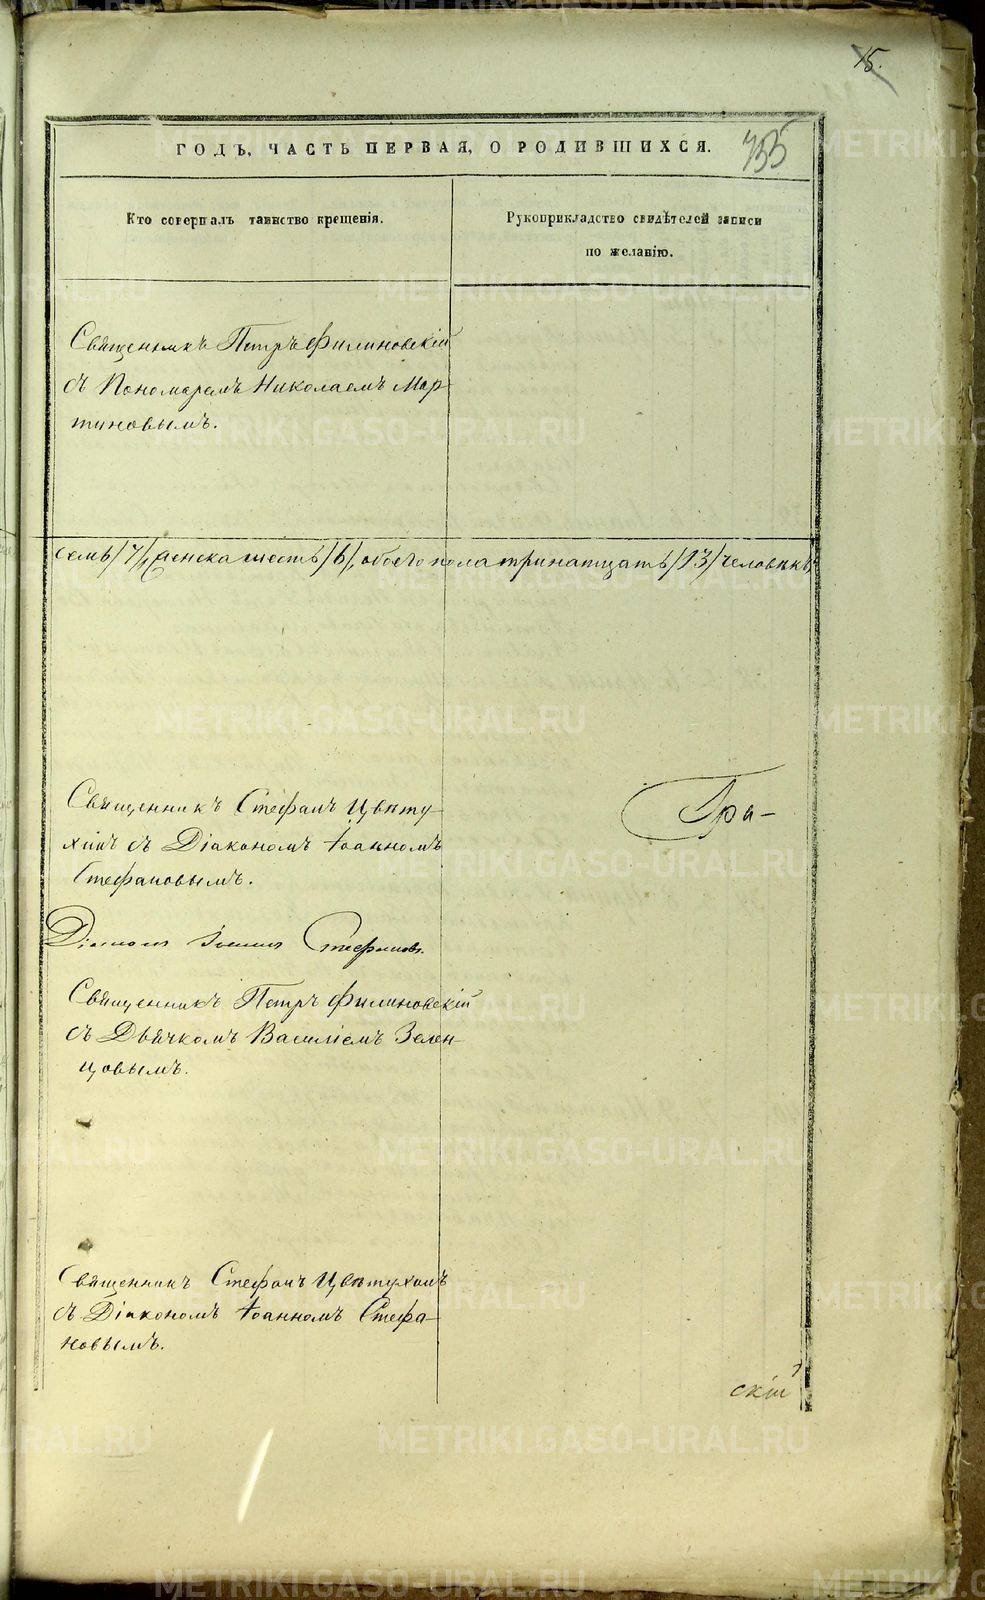 15.
ГОДЪ, ЧАСТЬ ПЕРВАЯ, О РОДИВШИХСЯ.
755
Кто совершалъ таинство крещенія.
Рукоприкладство свидѣтелей записи
по желанію.
Священникъ Петръ Филиновскій
съ Пономаремъ Николаемъ Мар
тиновымъ.
семь /7/, женска шесть /6/, обоего пола тринатцать /13/ человѣкъ,
Священникъ Стефанъ Цвѣту
хинъ съ Діакономъ Іоанномъ
Стефановымъ.
Гра-
Діаконъ Іоаннъ Стефановъ.
Священникъ Петръ Филиновскій
съ Дьячкомъ Василіемъ Зелен
цовымъ.
Священникъ Стефанъ Цвѣтухинъ
съ Діакономъ Іоанномъ Стефа-
новымъ.
скій
METRIKI.GASO-URAL.RU